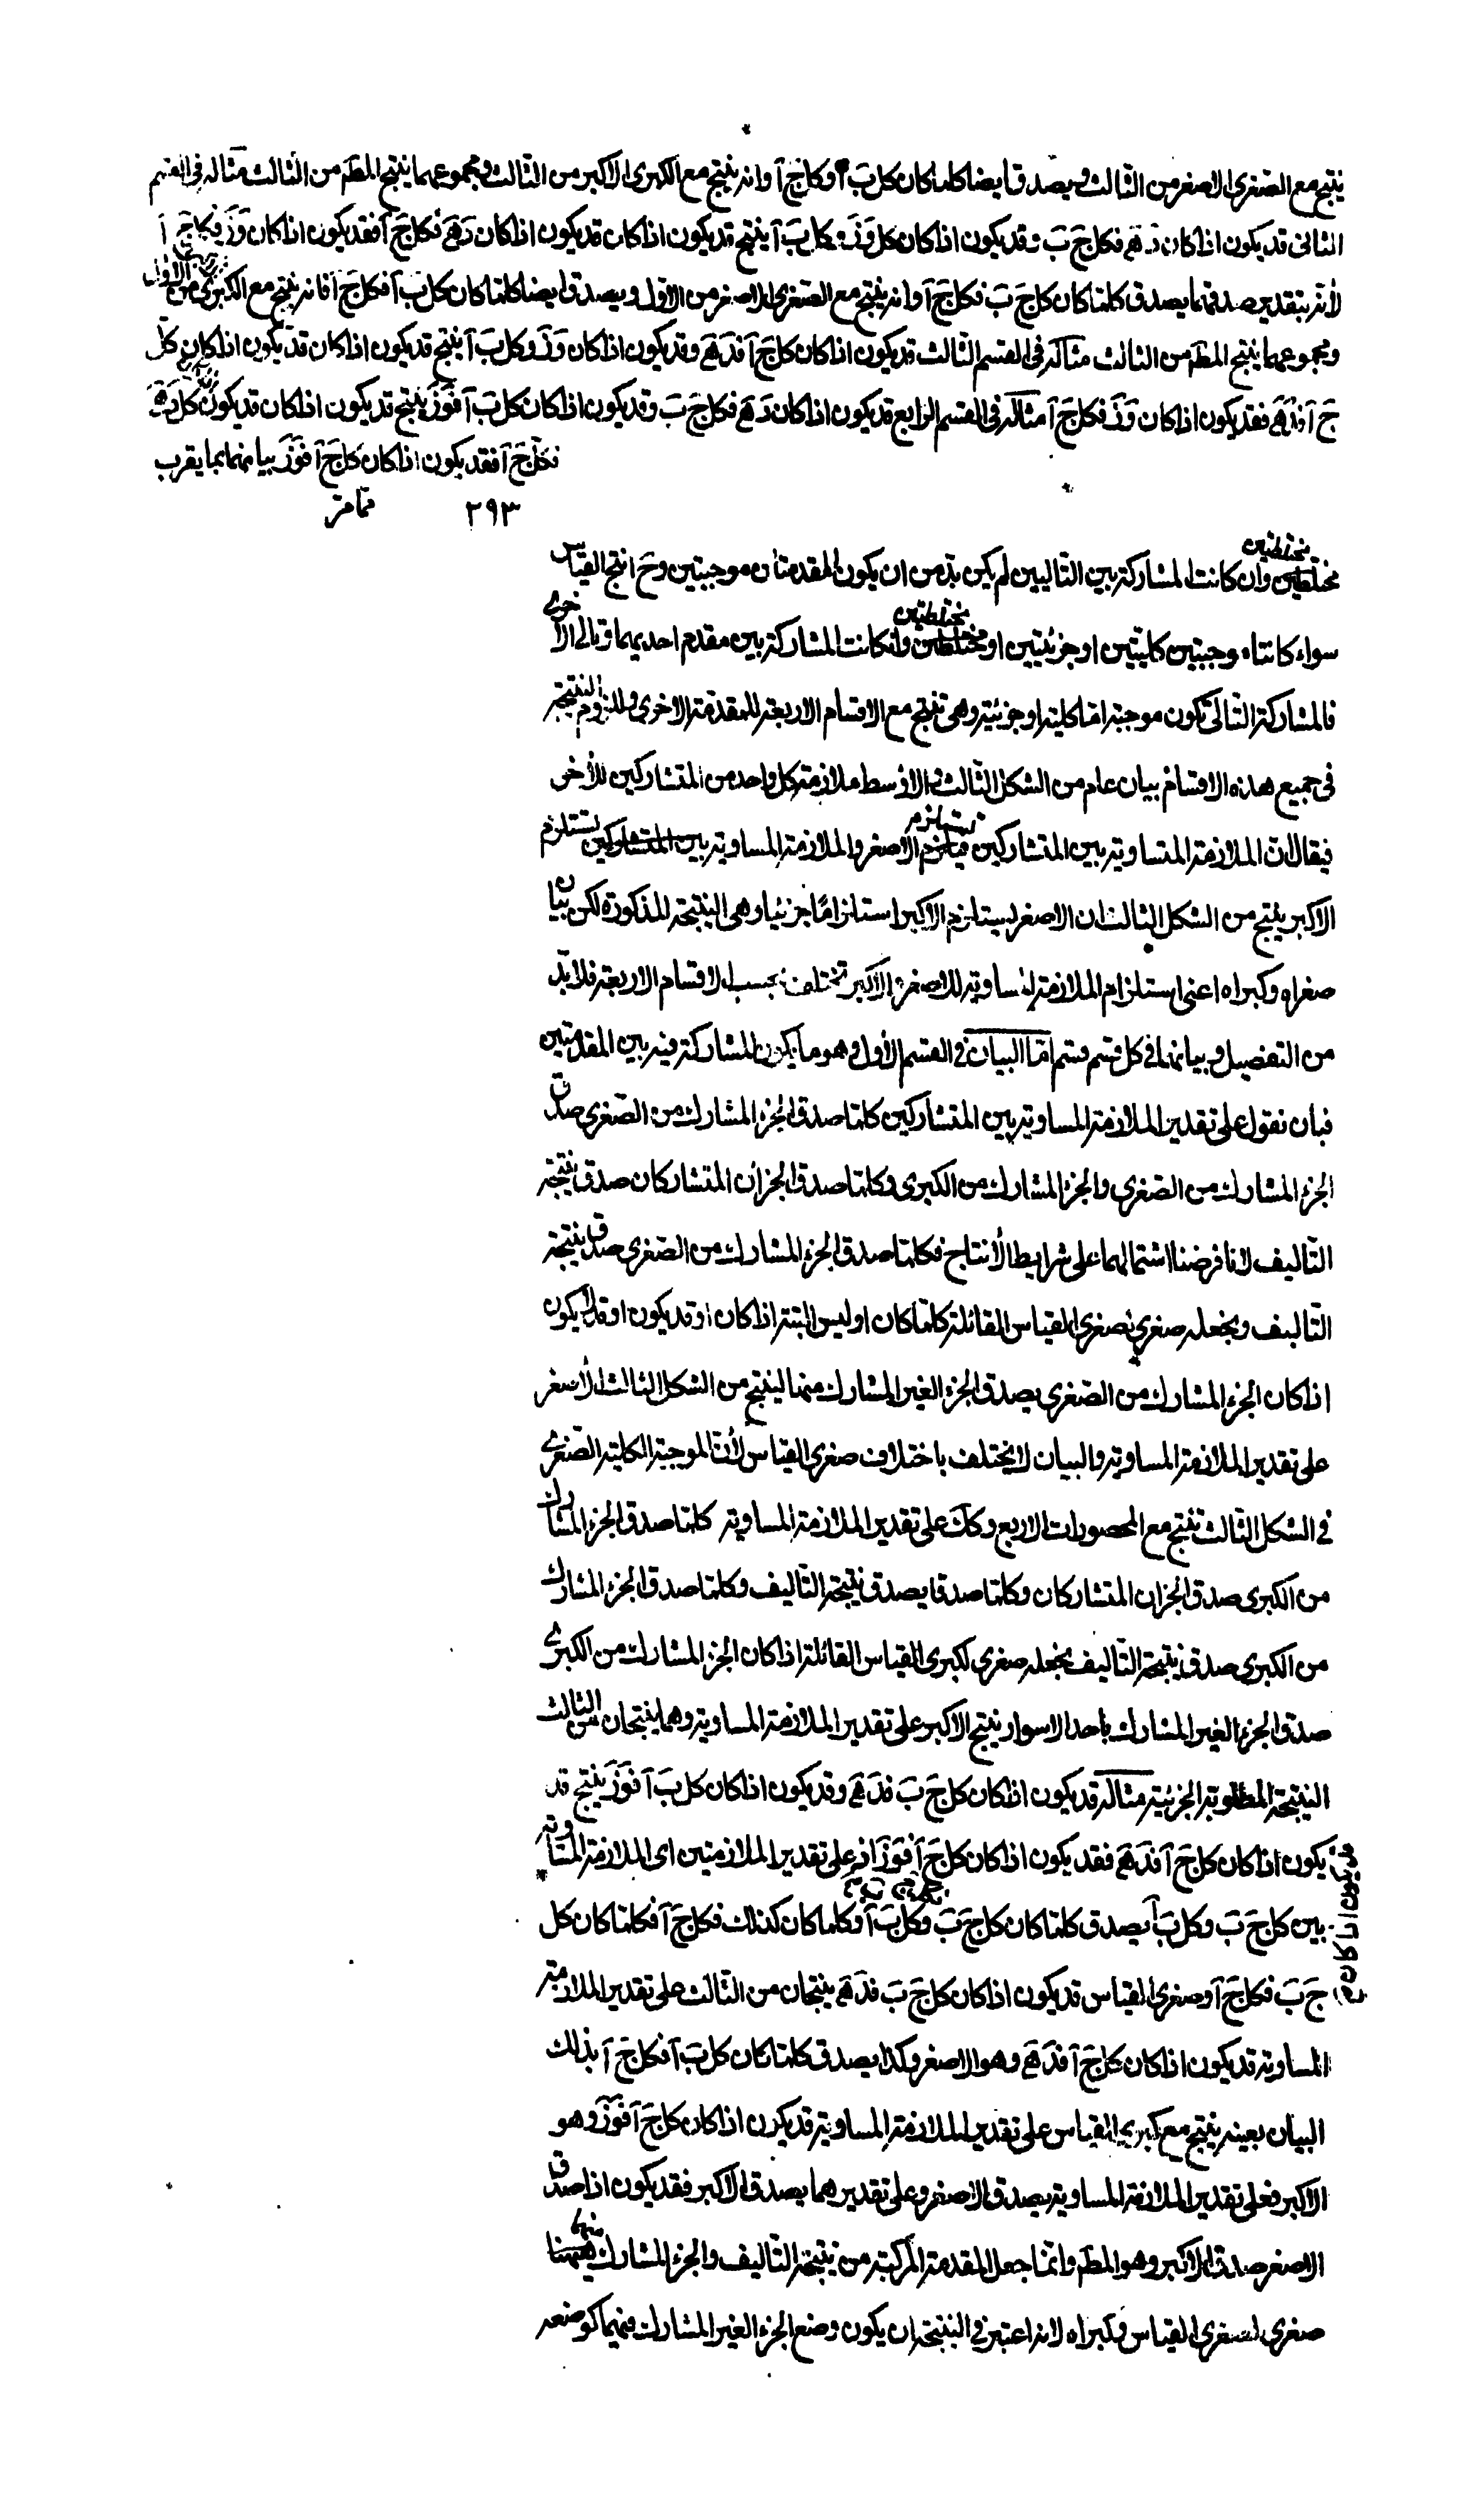 ينتج مع الصغرى الاصغر من الثالث ويصدق ايضا كلما كان كل بَ آ وكل جَ آ وانه ينتج مع الكبرى الاكبر من الثالث ومجموعهما ينتج المط من الثالث مثاله فى القسم
الثانى قد يكون اذا كان دَ هَ فكل جَ بَ وقد يكون اذا كان كل وَ زَ فكل بَ آ ينتج قد يكون اذا كان قد يكون اذا كان دَ هَ فكل جَ آ فقد يكون اذا كان وَ زَ فكل جَ آ
لأنه بتقدير صدقهما يصدق كلما كان كل جَ بَ فكل جَ آ وانه ينتج مع الصغرى الاصغر من الاول ويصدق ايضا كلما كان كل بَ آ فكل جَ آ فانه ينتج مع الكبرى من الاول
ومجموعهما ينتج المط من الثالث مثاله فى القسم الثالث قد يكون اذا كان كل جَ آ فدَ هَ وقد يكون اذا كان وَ زَ وكل بَ آ ينتج قد يكون اذا كان قد يكون اذا كان كل
جَ آ فدَ هَ فقد يكون اذا كان وَ زَ فكل جَ آ مثاله فى القسم الرابع قد يكون اذا كان دَ هَ فكل جَ بَ وقد يكون اذا كان كل بَ آ فوَ زَ ينتج قد يكون اذا كان قد يكون
فكل جَ آ فقد يكون اذا كان كل جَ آ فوَ زَ بيانهما بما يقرب
مما مر ٢٩٣
مختلطين وان كانت المشاركة بين التاليين لم يكن بد من ان يكون المقدمتان موجبتين وح انتج القياس
سواء كانتا موجبتين كليتين او جزئيتين او مختلطين وان كانت المشاركة بين مقدم احديهما وتالى الاخرى
فالمشاركة التالى تكون موجبة اما كلية او جزئية وهى تنتج مع الاقسام الاربعة للمقدمة الاخرى وللزوم النتيجة
فى جميع هذه الاقسام بيان عام من الشكل الثالث والاوسط ملازمة كل واحد من المتشاركين للأخر
فيقال ان الملازمة المتساوية بين المتشاركين تستلزم الاصغر والملازمة المساوية بين المتشاركين تستلزم
الاكبر ينتج من الشكل الثالث ان الاصغر يستلزم الاكبر استلزاما جزئيا وهى النتيجة المذكورة لكن بيان
صغراه وكبراه اعنى استلزام الملازمة المساوية للاصغر والاكبر تختلف بحسب الاقسام الاربعة فلا بد
من التفصيل وبيانهما فى كل قسم قسم اما البيان فى القسم الأول وهو ما يكون المشاركة فيه بين المقدمتين
فبان نقول على تقدير الملازمة المساوية بين المتشاركين كلما صدق الجزء المشارك من الصغرى صدق
الجزء المشارك من الصغرى والجزء المشارك من الكبرى وكلما صدق الجزان المتشاركان صدق نتيجة
التاليف لانا فرضنا اشتمالهما على شرايط الأنتاج فكلما صدق الجزء المشارك من الصغرى صدق نتيجة
التاليف ونجعله صغرى لصغرى القياس القائلة كلما كان او ليس البتة اذا كان او قد يكون او قد لا يكون
اذا كان الجزء المشارك من الصغرى يصدق الجزء الغير المشارك منها لينتج من الشكل الثالث الأصغر
على تقدير الملازمة المساوية والبيان لا يختلف باختلاف صغرى القياس لأن الموجبة الكلية الصغرى
فى الشكل الثالث تنتج مع المحصورات الاربع وكك على تقدير الملازمة المساوية كلما صدق الجزء المشارك
من الكبرى صدق الجزان المتشاركان وكلما صدقا يصدق نتيجة التاليف وكلما صدق الجزء المشارك
من الكبرى صدق نتيجة التاليف نجعله صغرى لكبرى القياس القائلة اذا كان الجزء المشارك من الكبرى
صدق الجزء الغير المشارك باحد الاسوار ينتج الاكبر على تقدير الملازمة المساوية وهما ينتجان من الثالث
النتيجة المطلوبة الجزئية مثاله قد يكون اذا كان كل جَ بَ فدَ هَ وقد يكون اذا كان كل بَ آ فوَ زَ ينتج قد
يكون اذا كان كل جَ آ فدَ هَ فقد يكون اذا كان كل جَ آ فوَ زَ اذ على تقدير الملازمتين اى الملازمة المساوية
بين كل جَ بَ وكل بَ آ يصدق كلما كان كل جَ بَ وكل بَ آ وكلما كان كذلك فكل جَ آ فكلما كان كل
جَ بَ فكل جَ آ وصغرى القياس قد يكون اذا كان كل جَ بَ فدَ هَ ينتجان من الثالث على تقدير الملازمة
المساوية قد يكون اذا كان كل جَ آ فدَ هَ وهو الاصغر وكذا يصدق كلما كان كل بَ آ فكل جَ آ بذلك
البيان بعينه ينتج مع كبرى القياس على تقدير الملازمة المساوية قد يكون اذا كان كل جَ آ فوَ زَ وهو
الاكبر فعلى تقدير الملازمة المساوية يصدق الاصغر وعلى تقديرهما يصدق الاكبر فقد يكون اذا صدق
الاصغر صدق الاكبر وهو المط وانما جعل المقدمة المركبة من نتيجة التاليف والجزء المشارك منهما
صغرى لصغرى القياس وكبراه لانه اعتبر فى النتيجة ان يكون وضع الجزء الغير المشارك فيهما كوضعه